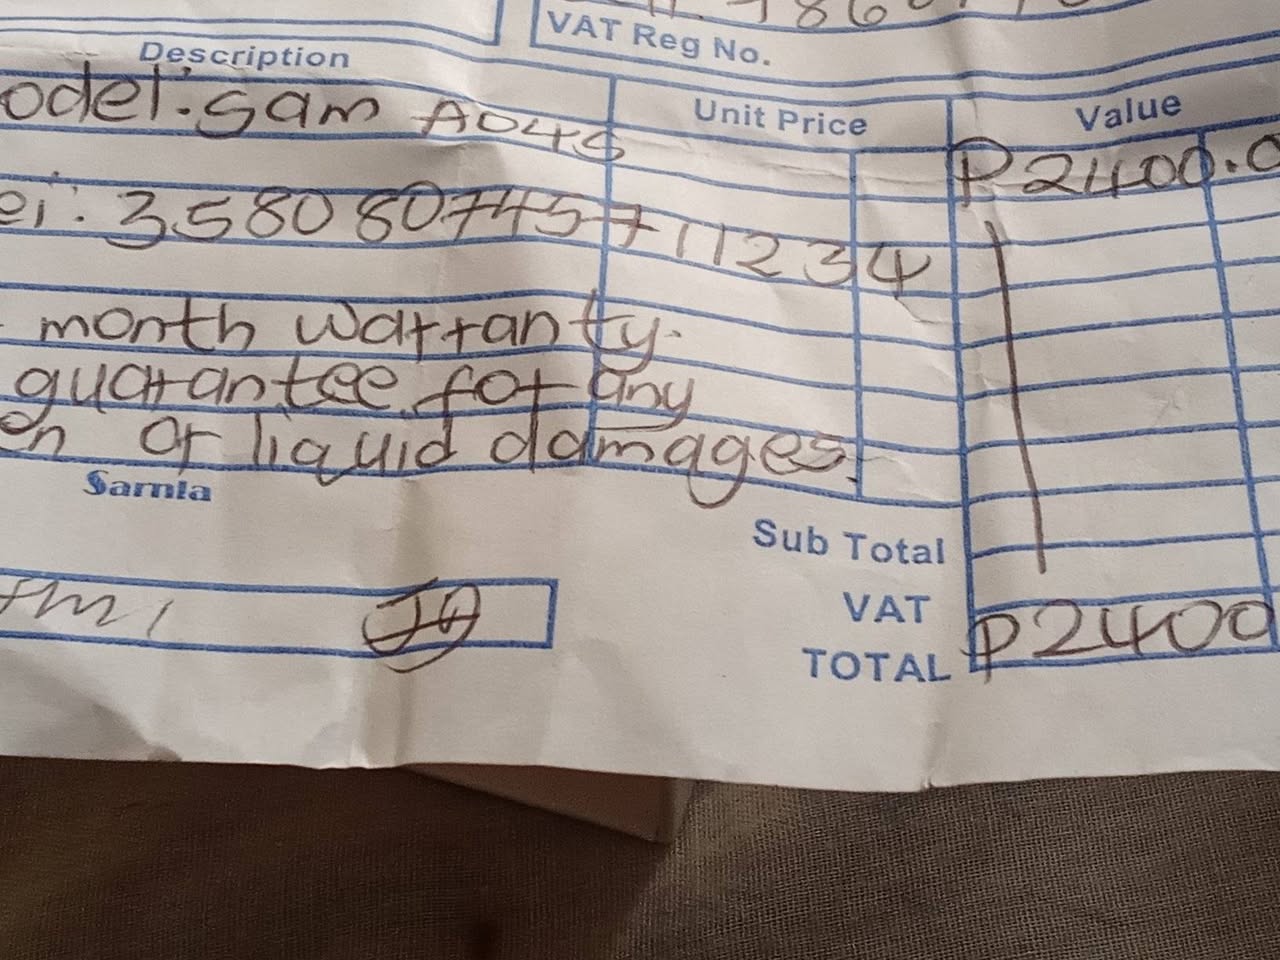 VAT Reg No.
Description
Unit Price
Value
odel: Sam A04s
P2400.0
ei: 358080745711234
month warranty.
guarantee for any
en or liquid damages.
Sarnla
Sub Total
VAT
P2400
TOTAL